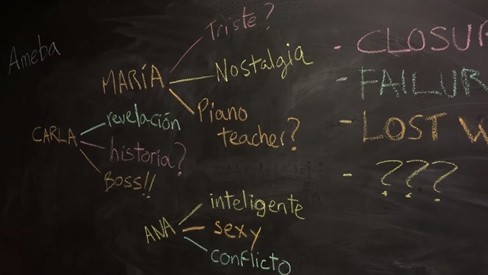 Ameba
MARÍA
Tristé?
Nostalgia
Piano
teacher?
CARLA
revelación
historia?
BOSS!!
ANA
inteligente
sexy
conflicto
- CLOSUR
- FAILUR
- LOST W
- ???